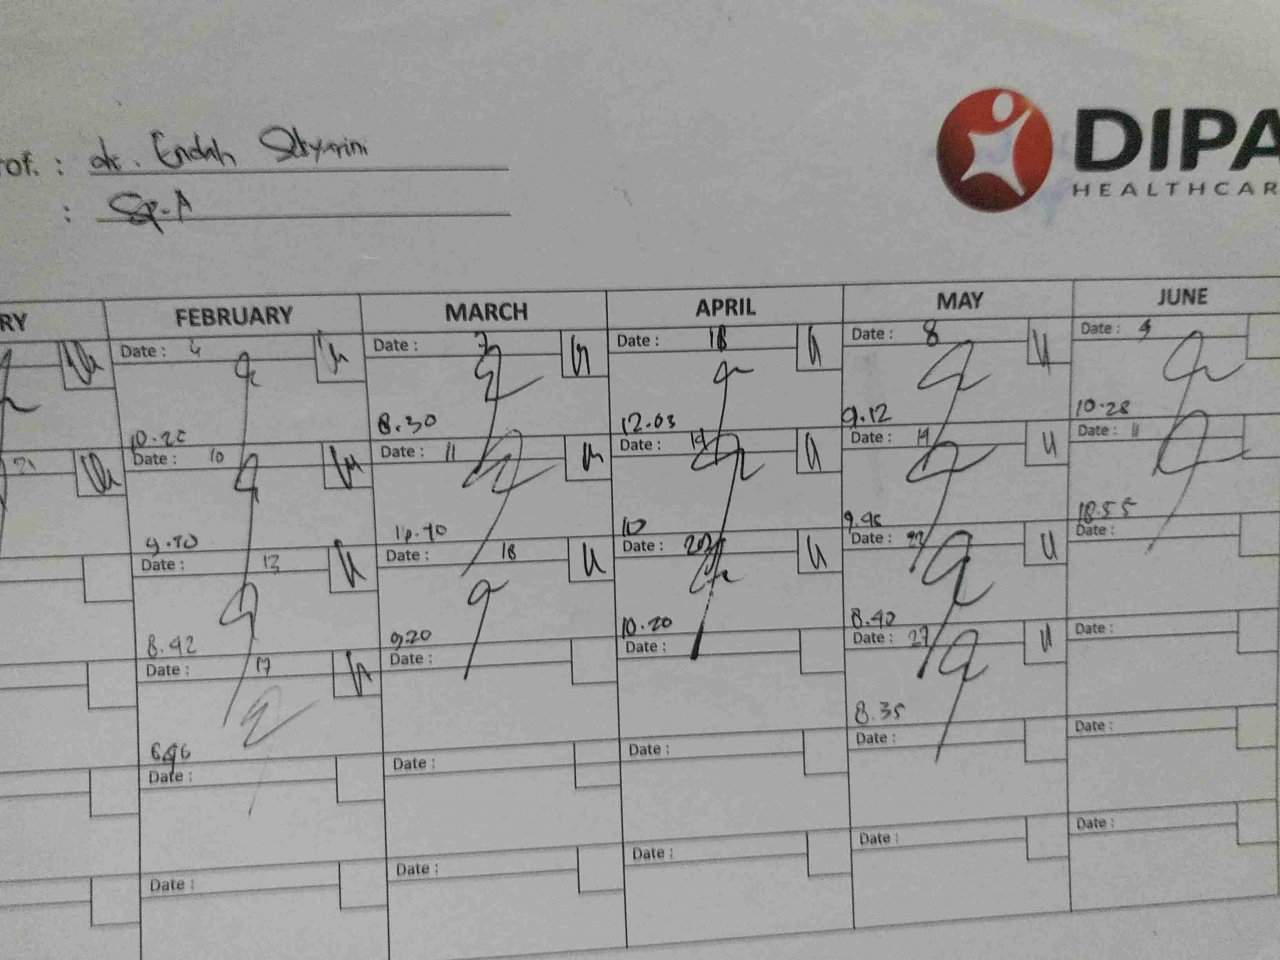 rof. : dr. Endah Setyarini
: Sp.A
DIPA
HEALTHCAR
RY FEBRUARY MARCH APRIL MAY JUNE
Date : 4 Date : 7 Date : 18 Date : 8 Date : 4
8.30 12.03 9.12 10.28
21 Date : 10 Date : 11 Date : 19 Date : 19 Date : 11
10 18.55
Date : 13 Date : 18 Date : Date : Date :
8.42 9.20 10.20 8.40
Date : 17 Date : Date : Date : 27 Date :
8.35
Date : Date : Date : Date : Date :
Date : Date : Date : Date : Date :